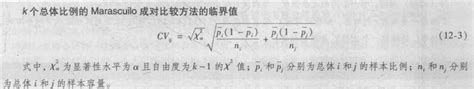 k 个总体比例的 Marascuilo 成对比较方法的临界值
CV_{ij} = \sqrt{\chi_\alpha^2} \sqrt{\frac{\bar{p}_i(1-\bar{p}_i)}{n_i} + \frac{\bar{p}_j(1-\bar{p}_j)}{n_j}} (12-3)
式中，χ²_α 为显著性水平为 α 且自由度为 k-1 的 χ² 值；p̄_i 和 p̄_j 分别为总体 i 和 j 的样本比例；n_i 和 n_j 分别
为总体 i 和 j 的样本容量。